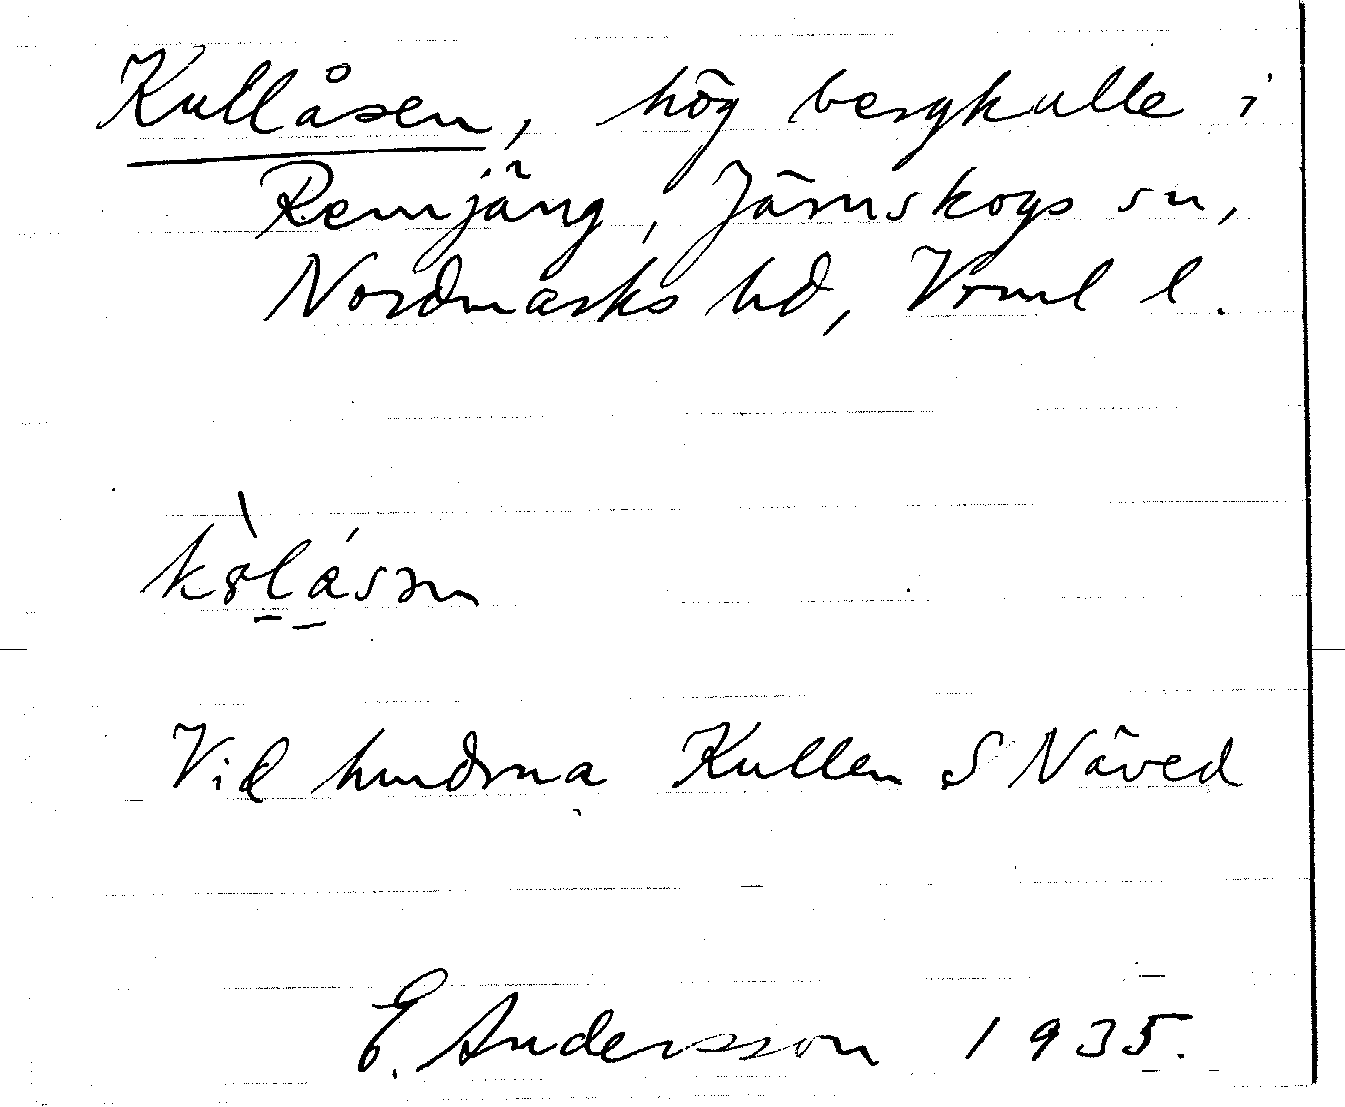 Kullåsen, hög bergkulle i
Remjäng, Järnskogs sn,
Nordmarks hd, Vrml l.
Vid hmdrna Kullen S Näved
E. Andersson 1935.